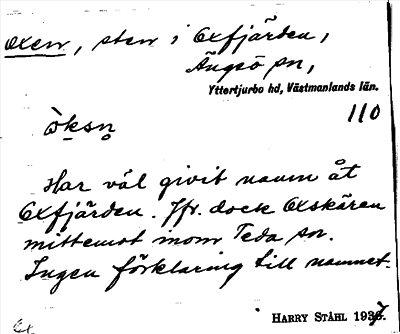 oxen, sten i Oxfjärden,
Ängsö sn,
Yttertjurbo hd, Västmanlands län.
110
ò̱ksn̥
Har väl givit namn åt
Oxfjärden. Jfr. dock Oxskären
mittemot inom Teda sn.
Ingen förklaring till namnet.
HARRY STÅHL 1937.